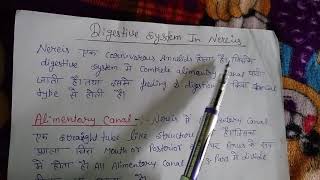 Digestive System In Nereis
Nereis एक Carnivorous Annelids होता है। जिसके
digestive system में Complete alimentary Canal पाया
जाती है। तथा इसमें feeding & digestion की क्रिया special
type से होती है।
Alimentary Canal :- Nereis में Alimentary Canal
एक straight tube like structure होता है।
Mouth or Posterior Anus के रूप
में होता है। All Alimentary Canal Part में divide